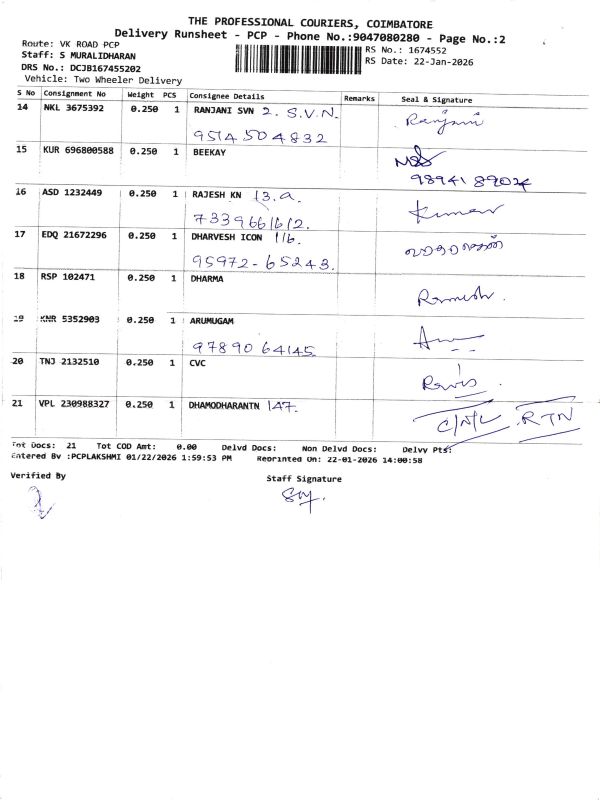 THE PROFESSIONAL COURIERS, COIMBATORE
Delivery Runsheet - PCP - Phone No.:9047080280 - Page No.:2
Route: VK ROAD PCP
Staff: S MURALIDHARAN
DRS No.: DCJB167455202
Vehicle: Two Wheeler Delivery
RS No.: 1674552
RS Date: 22-Jan-2026
S No Consignment No Weight PCS Consignee Details Remarks Seal & Signature
14 NKL 3675392 0.250 1 RANJANI SVN 2. S.V.N. Ranjani
9514504832
15 KUR 696800588 0.250 1 BEEKAY
9894189024
16 ASD 1232449 0.250 1 RAJESH KN 13.a. Kumar
7339661612.
17 EDQ 21672296 0.250 1 DHARVESH ICON 116.
95972-65243.
18 RSP 102471 0.250 1 DHARMA Ramesh.
19 KNR 5352903 0.250 1 ARUMUGAM
9789064145
20 TNJ 2132510 0.250 1 CVC Ravis
21 VPL 230988327 0.250 1 DHAMODHARANTN 147. C/N/L RTN
Tot Docs: 21 Tot COD Amt: 0.00 Delvd Docs: Non Delvd Docs: Delvy Pts:
Entered By :PCPLAKSHMI 01/22/2026 1:59:53 PM Reprinted On: 22-01-2026 14:00:58
Verified By
Staff Signature